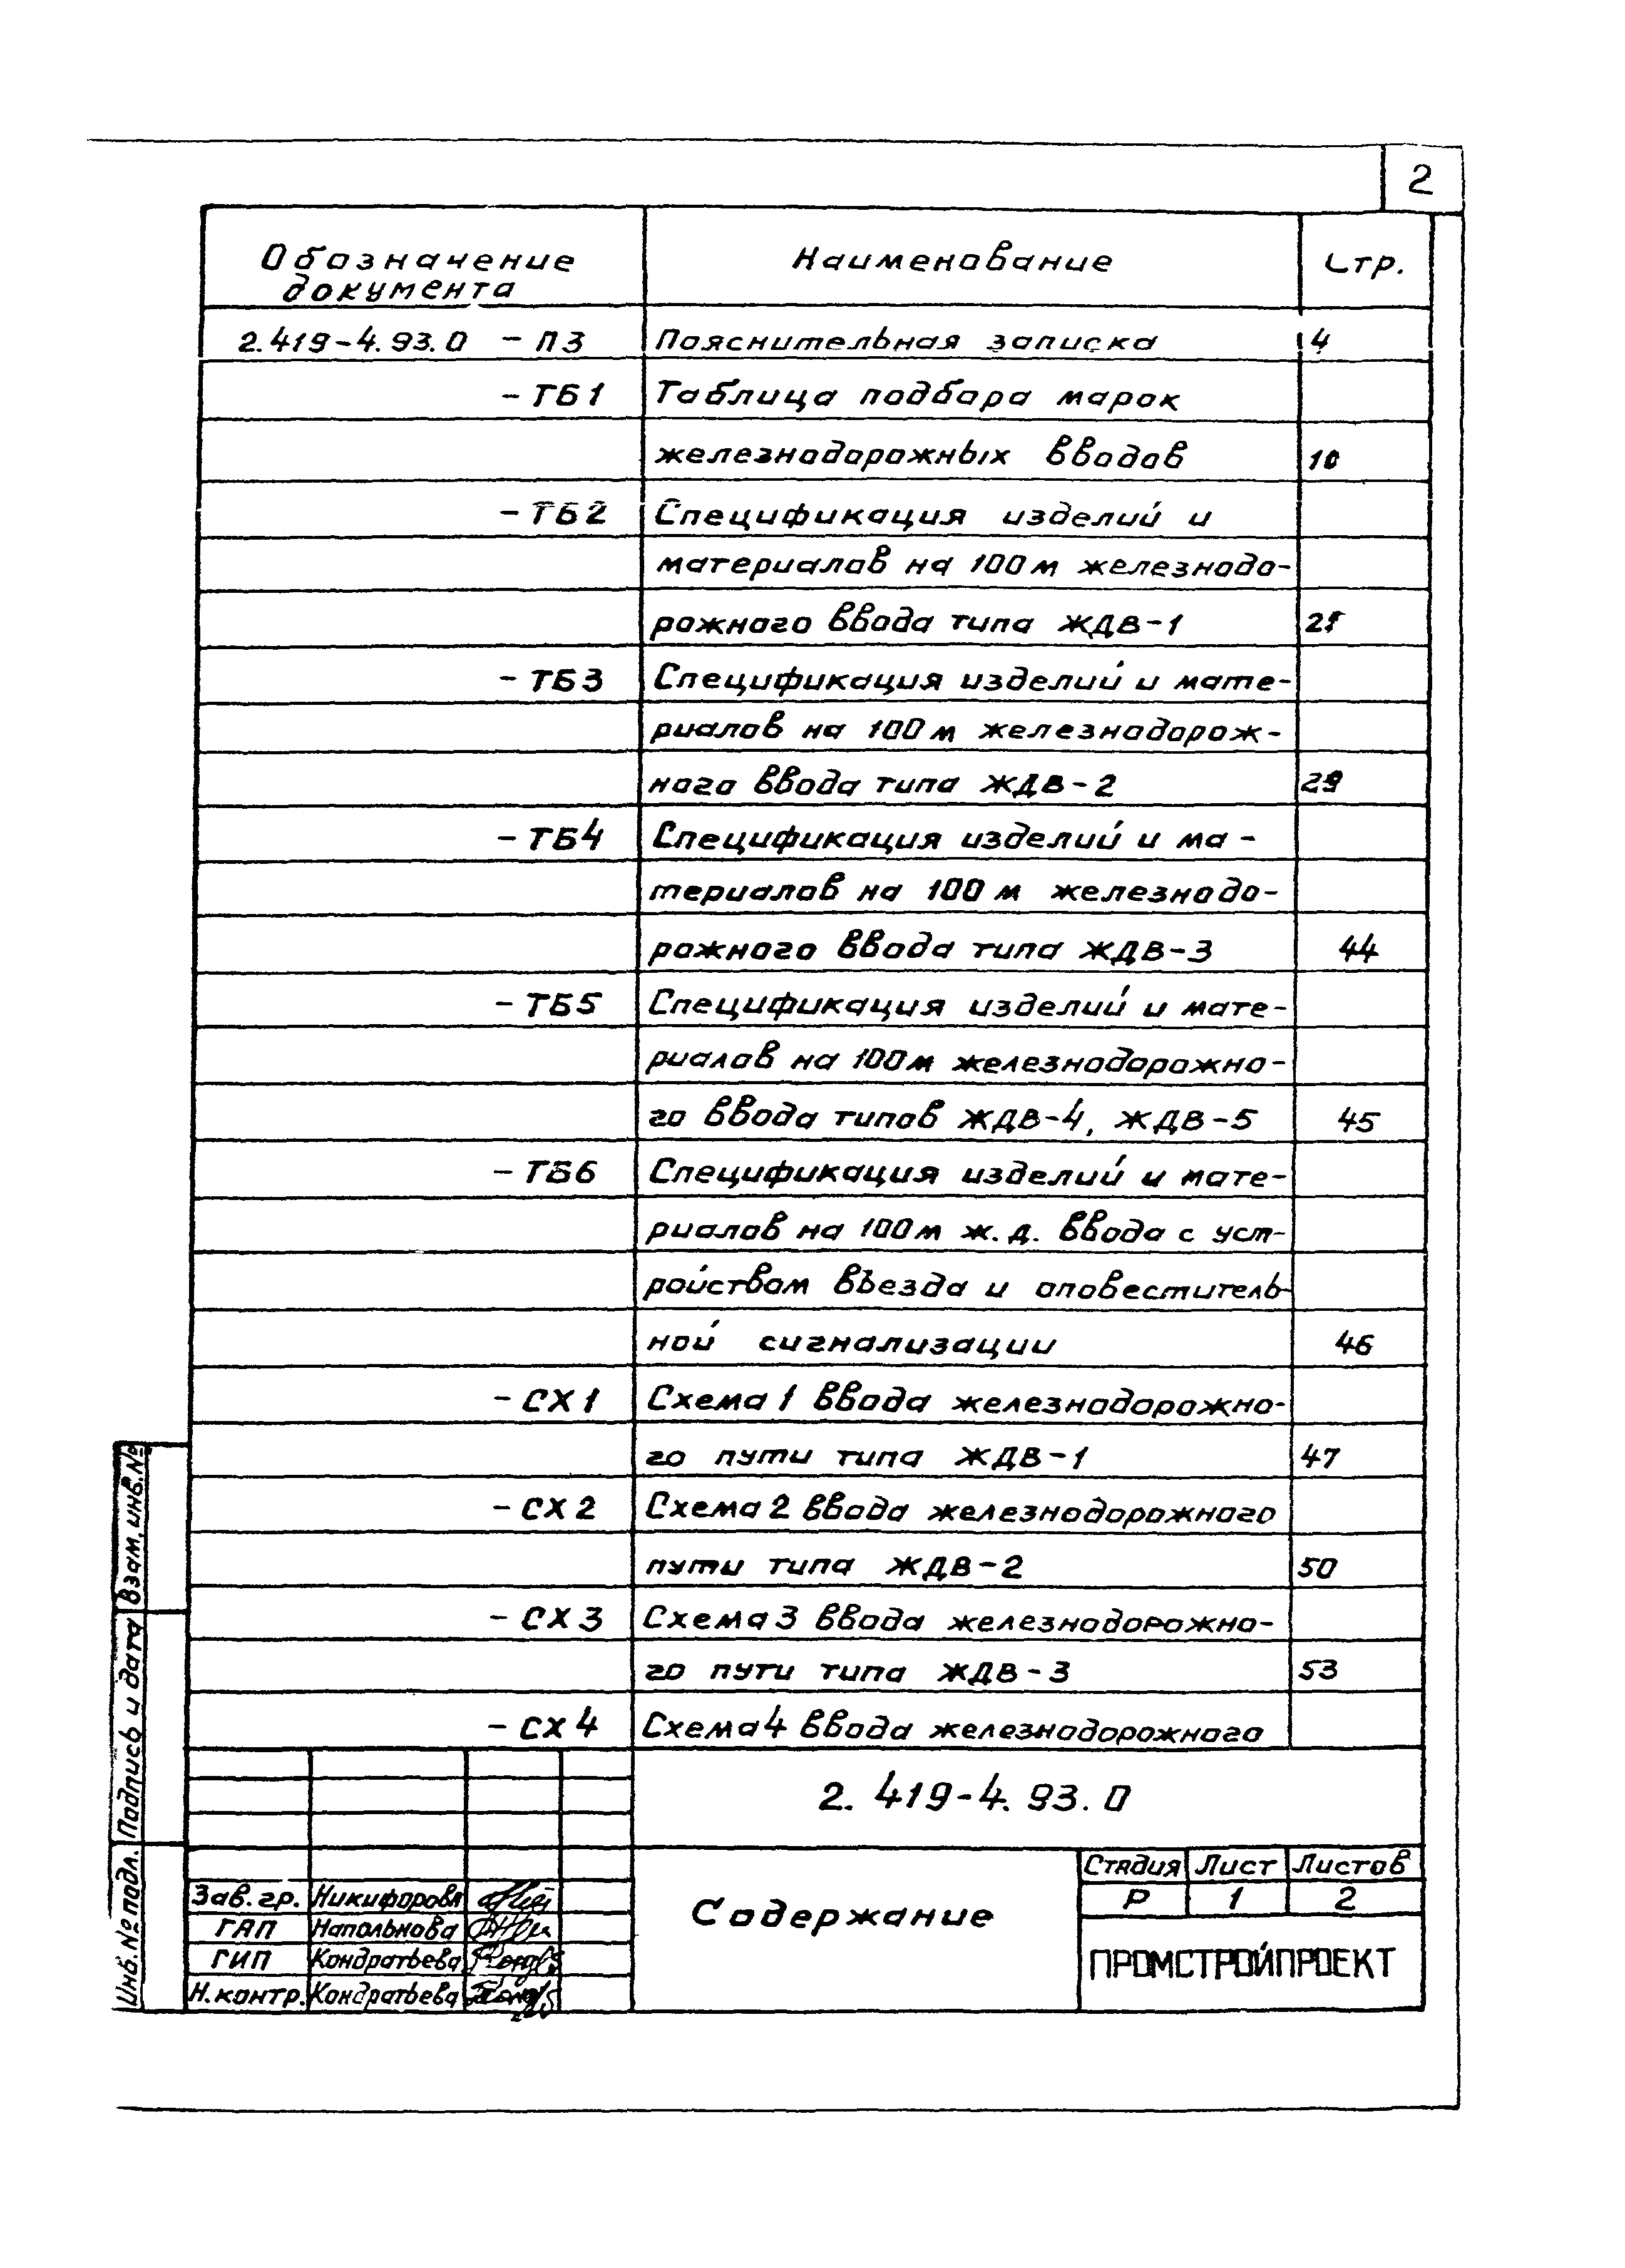 2
Обозначение документа Наименование Стр.
2.419-4.93.0 - ПЗ Пояснительная записка 4
- ТБ1 Таблица подбора марок
железнодорожных вводов 10
- ТБ2 Спецификация изделий и
материалов на 100 м железнодо-
рожного ввода типа ЖДВ-1
- ТБ3 Спецификация изделий и мате-
риалов на 100 м железнодорож-
ного ввода типа ЖДВ-2 29
- ТБ4 Спецификация изделий и ма-
териалов на 100 м железнодо-
рожного ввода типа ЖДВ-3 44
- ТБ5 Спецификация изделий и мате-
риалов на 100 м железнодорожно-
го ввода типов ЖДВ-4, ЖДВ-5 45
- ТБ6 Спецификация изделий и мате-
риалов на 100 м ж.д. ввода с уст-
ройством въезда и оповеститель-
ной сигнализации 46
- СХ1 Схема 1 ввода железнодорожно-
го пути типа ЖДВ-1 47
- СХ2 Схема 2 ввода железнодорожного
пути типа ЖДВ-2 50
- СХ3 Схема 3 ввода железнодорожно-
го пути типа ЖДВ-3 53
- СХ4 Схема 4 ввода железнодорожного
2.419-4.93.0
Содержание
Стадия Лист Листов
Р 1 2
ПРОМСТРОЙПРОЕКТ
Зав. гр. Никифорова
ГАП Напольнова
ГИП Кондратьева
Н. контр. Кондратьева
Взам. инв. №
Подпись и дата
Инв. № подл.